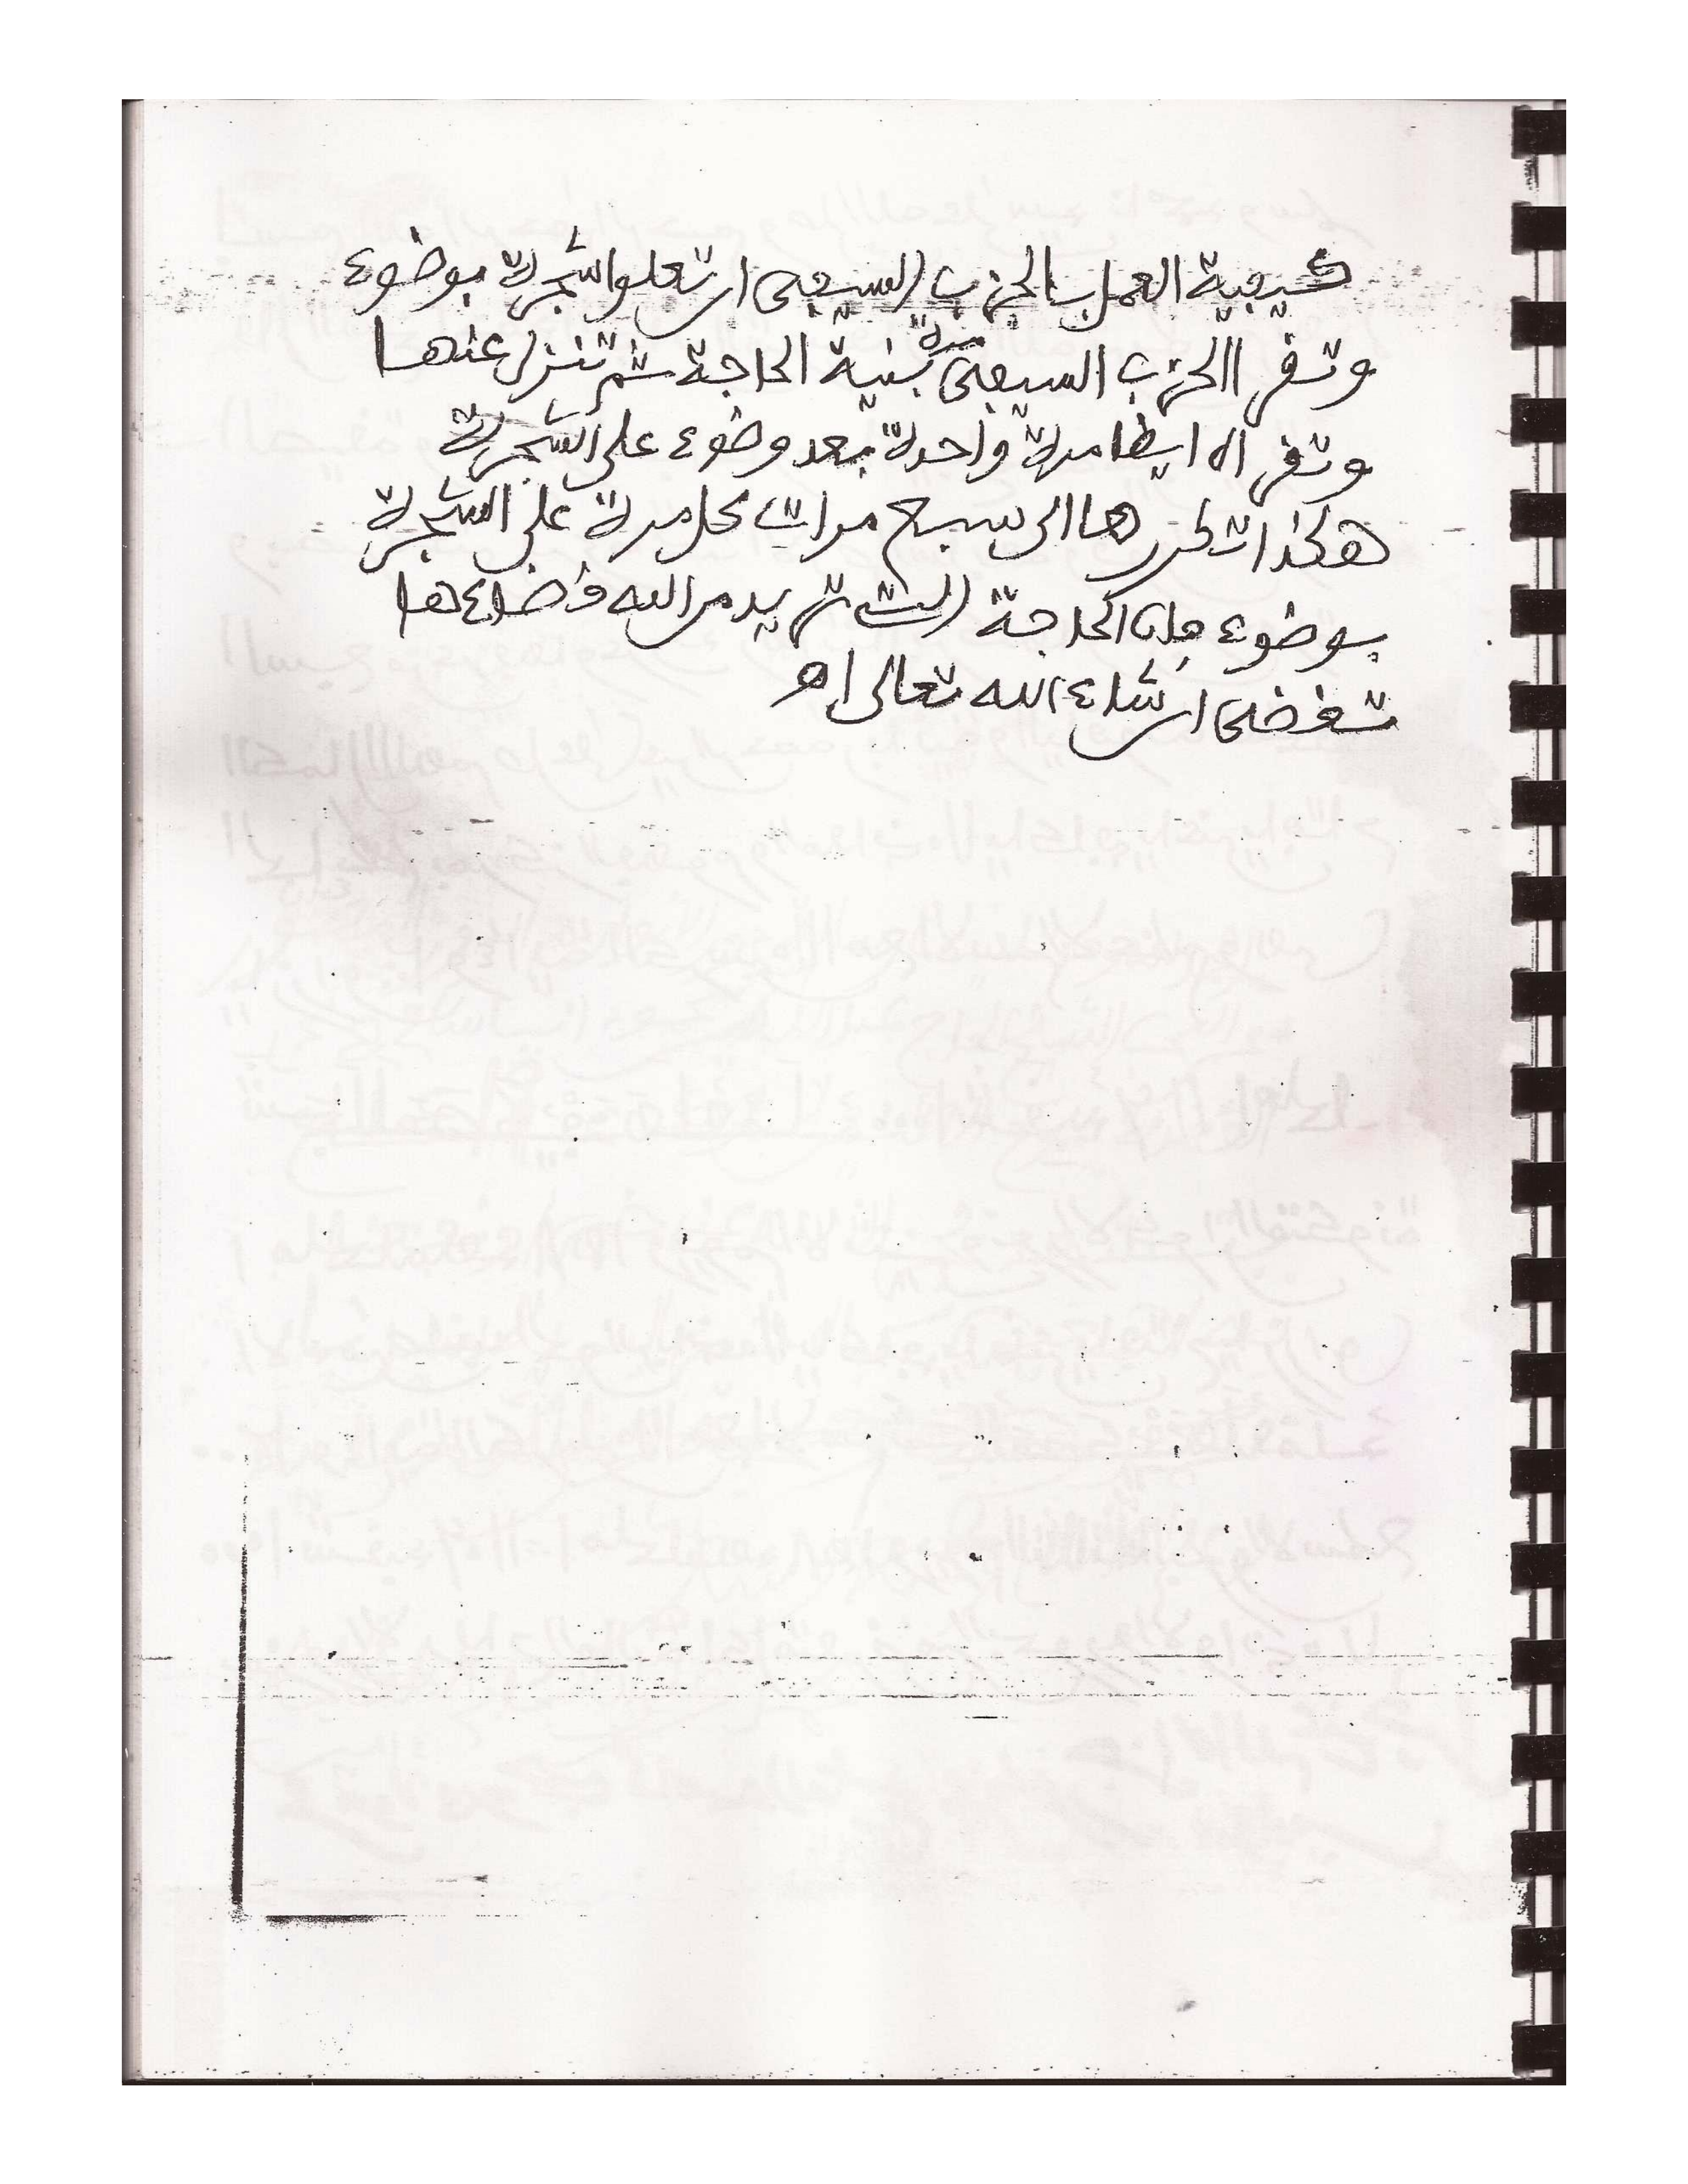 كيفية العمل بالحزب السيفى ان تعلوا شجرة بوضوء
وتقرا الحزب السيفى مرة بنية الحاجة ثم تنزل عنها
وتقراه ايظا مرة واحدة بعد وضوء على الشجرة
هكذا تكررها الى سبع مرات كل مرة على الشجرة
بوضوء فان الحاجة الت تريد من الله قضاءها
تقضى ان شاء الله تعالى اه